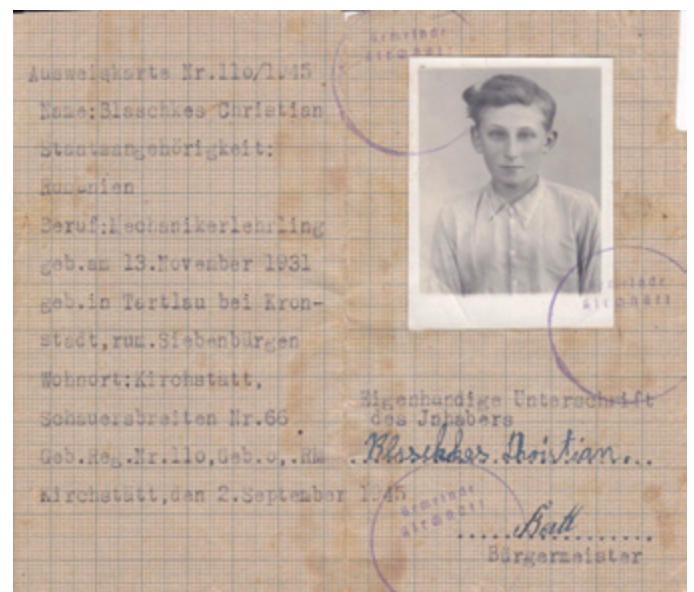 Ausweiskarte Nr.110/1945
Name:Blaschkes Christian
Staatsangehörigkeit:
Rumänien
Beruf:Mechanikerlehrling
geb.am 13.November 1931
geb.in Tartlau bei Kron-
stadt,rum.Siebenbürgen
Wohnort:Kirchstätt,
Schauersbreiten Nr.66
Geb.Reg.Nr.110,Geb.o,.RM
Kirchstätt,den 2.September 1945
Gemeinde
Gemeinde
Eigenhändige Unterschrift
des Jnhabers
Blaschkes Christian
Gemeinde
Bürgermeister